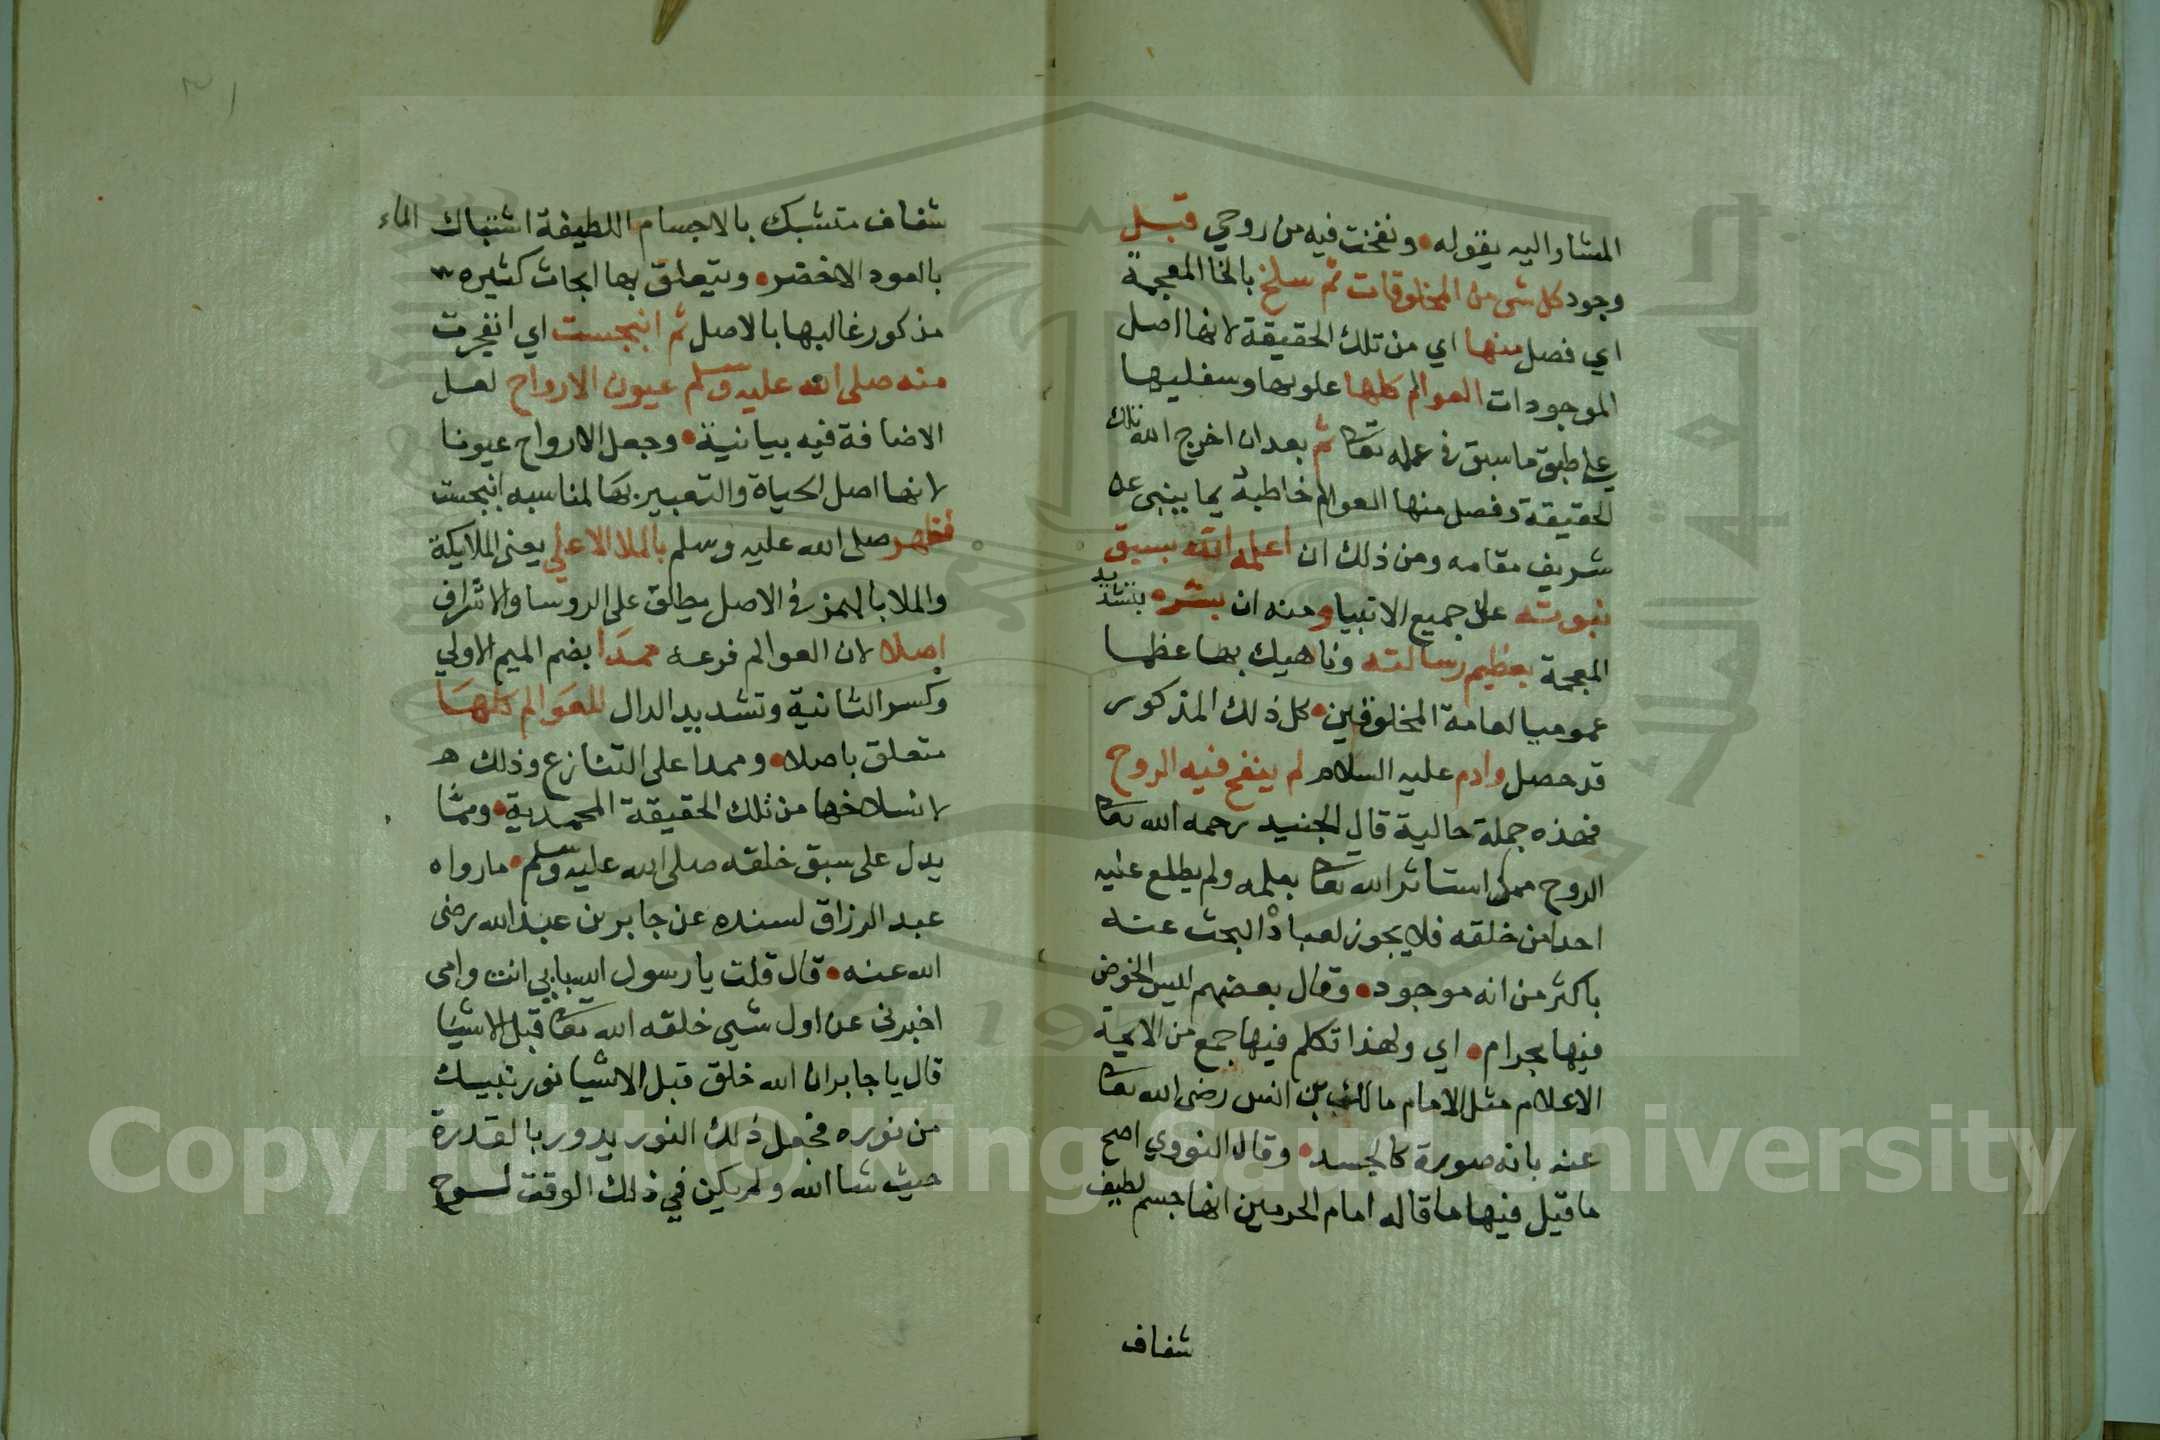 المشار اليه بقوله ونفخت فيه من روحي قبل
وجود كل شي من المخلوقات ثم سلخ بالخا المعجمة
اي فصل منها اي من تلك الحقيقة لانها اصل
الموجودات العوالم كلها علويها وسفليها
علي طبق ما سبق في علمه تعا ثم بعد ان اخرج الله تلك
الحقيقة وفصل منها العوالم خاطبه بما ينبي عن
شريف مقامه ومن ذلك ان اعلمه الله بسبق
نبوته على جميع الانبيا ومنه ان بشره بتشديد
المعجمة بعظيم رسالته وناهيك بها عظما
عموميا لعامة المخلوقين كل ذلك المذكور
قد حصل وادم عليه السلام لم ينفخ فيه الروح
فهذه جملة حالية قال الجنيد رحمه الله تعا
الروح مما استاثر الله تعا بعلمه ولم يطلع عليه
احدا من خلقه فلا يجوز لعباده البحث عنه
باكثر من انه موجود وقال بعضهم ليس الخوض
فيها بحرام اي ولهذا تكلم فيها جمع من الايمة
الاعلام مثل الامام مالك بن انس رضى الله تعا
عنه بانه صورة كالجسد وقال النووي اصح
ما قيل فيها ما قاله امام الحرمين انها جسم لطيف
شفاف
شفاف متشبك بالاجسام اللطيفة اشتباك الماء
بالعود الاخضر ويتعلق بها ابحاث كثيره
مذكور غالبها بالاصل ثم انبجست اي انفجرت
منه صلى الله عليه وسلم عيون الارواح لعل
الاضافة فيه بيانية وجعل الارواح عيونا
لانها اصل الحياة والتعبير بها لمناسبه انبجست
فظهر صلى الله عليه وسلم بالملا الاعلي يعنى الملايكة
والملا بالهمز في الاصل يطلق على الروسا والاشراف
اصلا لان العوالم فرعه ممدا بضم الميم الاولي
وكسر الثانية وتشديد الدال للعوالم كلها
متعلق باصلا وممدا على التنازع وذلك
لانسلاخها من تلك الحقيقة المحمدية ومما
يدل على سبق خلقه صلى الله عليه وسلم ما رواه
عبد الرزاق لسنده عن جابر بن عبد الله رضى
الله عنه قال قلت يا رسول الله بابي انت وامى
اخبرنى عن اول شي خلقه الله تعا قبل الاشيا
قال يا جابر ان الله خلق قبل الاشيا نور نبيك
من نوره فجعل ذلك النور يدور بالقدرة
حيث شا الله ولم يكن في ذلك الوقت لوح
Copyright © King Saud University